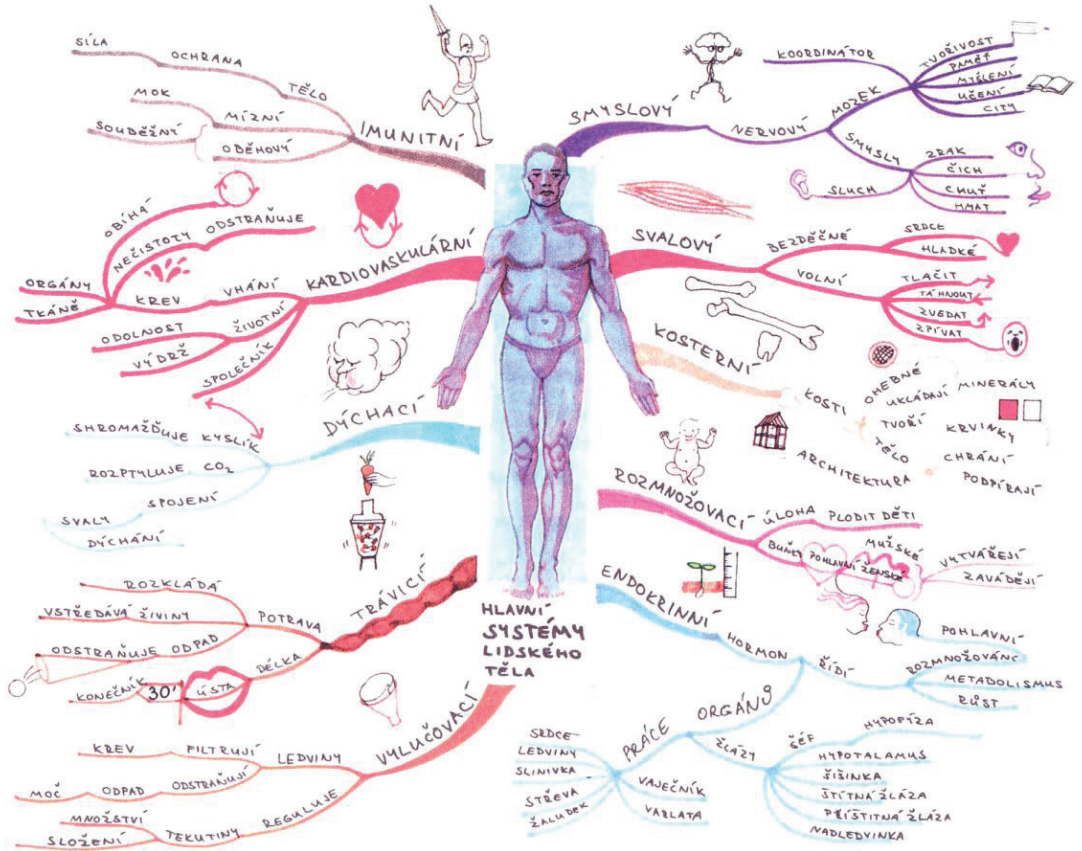 HLAVNÍ
SYSTÉMY
LIDSKÉHO
TĚLA
IMUNITNÍ
TĚLO
OCHRANA
SÍLA
MÍZNÍ
MOK
SOUBĚŽNÝ
OBĚHOVÝ
KARDIOVASKULÁRNÍ
VHÁNÍ
KREV
OBÍHÁ
NEČISTOTY
ODSTRAŇUJE
ORGÁNY
TKÁNĚ
ŽIVOTNÍ
ODOLNOST
VÝDRŽ
SPOLEČNÍK
DÝCHACÍ
SHROMAŽĎUJE KYSLÍK
ROZPTYLUJE CO2
SPOJENÍ
SVALY
DÝCHÁNÍ
TRÁVICÍ
POTRAVA
ROZKLÁDÁ
VSTŘEDÁVÁ ŽIVINY
ODSTRAŇUJE ODPAD
DÉLKA
ÚSTA
30'
KONEČNÍK
VYLUČOVACÍ
LEDVINY
FILTRUJÍ
KREV
ODSTRAŇUJÍ
ODPAD
MOČ
REGULUJE
TEKUTINY
MNOŽSTVÍ
SLOŽENÍ
SMYSLOVÝ
NERVOVÝ
MOZEK
KOORDINÁTOR
TVOŘIVOST
PAMĚŤ
MYŠLENÍ
UČENÍ
CITY
SMYSLY
SLUCH
ZRAK
ČICH
CHUŤ
HMAT
SVALOVÝ
BEZDĚČNÉ
SRDCE
HLADKÉ
VOLNÍ
TLAČIT
TÁHNOUT
ZVEDAT
ZPÍVAT
KOSTERNÍ
KOSTI
OHEBNÉ
UKLÁDAJÍ
MINERÁLY
TVOŘÍ
KRVINKY
TĚLO
CHRÁNÍ
PODPÍRAJÍ
ARCHITEKTURA
ROZMNOŽOVACÍ
ÚLOHA
PLODIT DĚTI
BUŇKY
POHLAVNÍ
MUŽSKÉ
ŽENSKÉ
VYTVÁŘEJÍ
ZAVÁDĚJÍ
ENDOKRINNÍ
HORMON
ŘÍDÍ
POHLAVNÍ
ROZMNOŽOVÁNÍ
METABOLISMUS
RŮST
ORGÁNŮ
PRÁCE
SRDCE
LEDVINY
SLINIVKA
STŘEVA
ŽALUDEK
VAJEČNÍK
VARLATA
ŽLÁZY
ŠÉF
HYPOFÝZA
HYPOTALAMUS
ŠIŠINKA
ŠTÍTNÁ ŽLÁZA
PŘÍŠTITNÁ ŽLÁZA
NADLEDVINKA